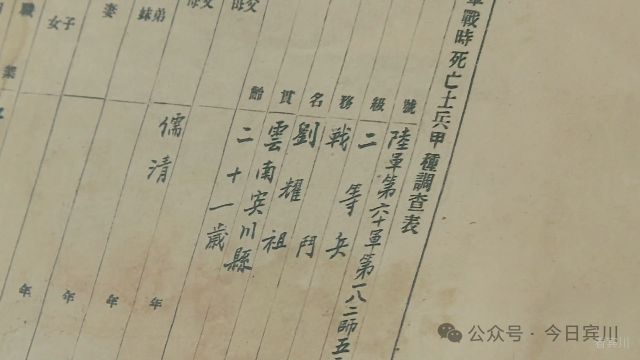 戰時死亡士兵甲種調查表
號 陸軍第六十軍第一八二師五
級 二等兵
務 戰鬥
名 劉耀祖
貫 雲南宾川縣
齡 二十一歲
弟妹 儒清 年
妻 年
子女 年
職業 年
公众号 · 今日宾川